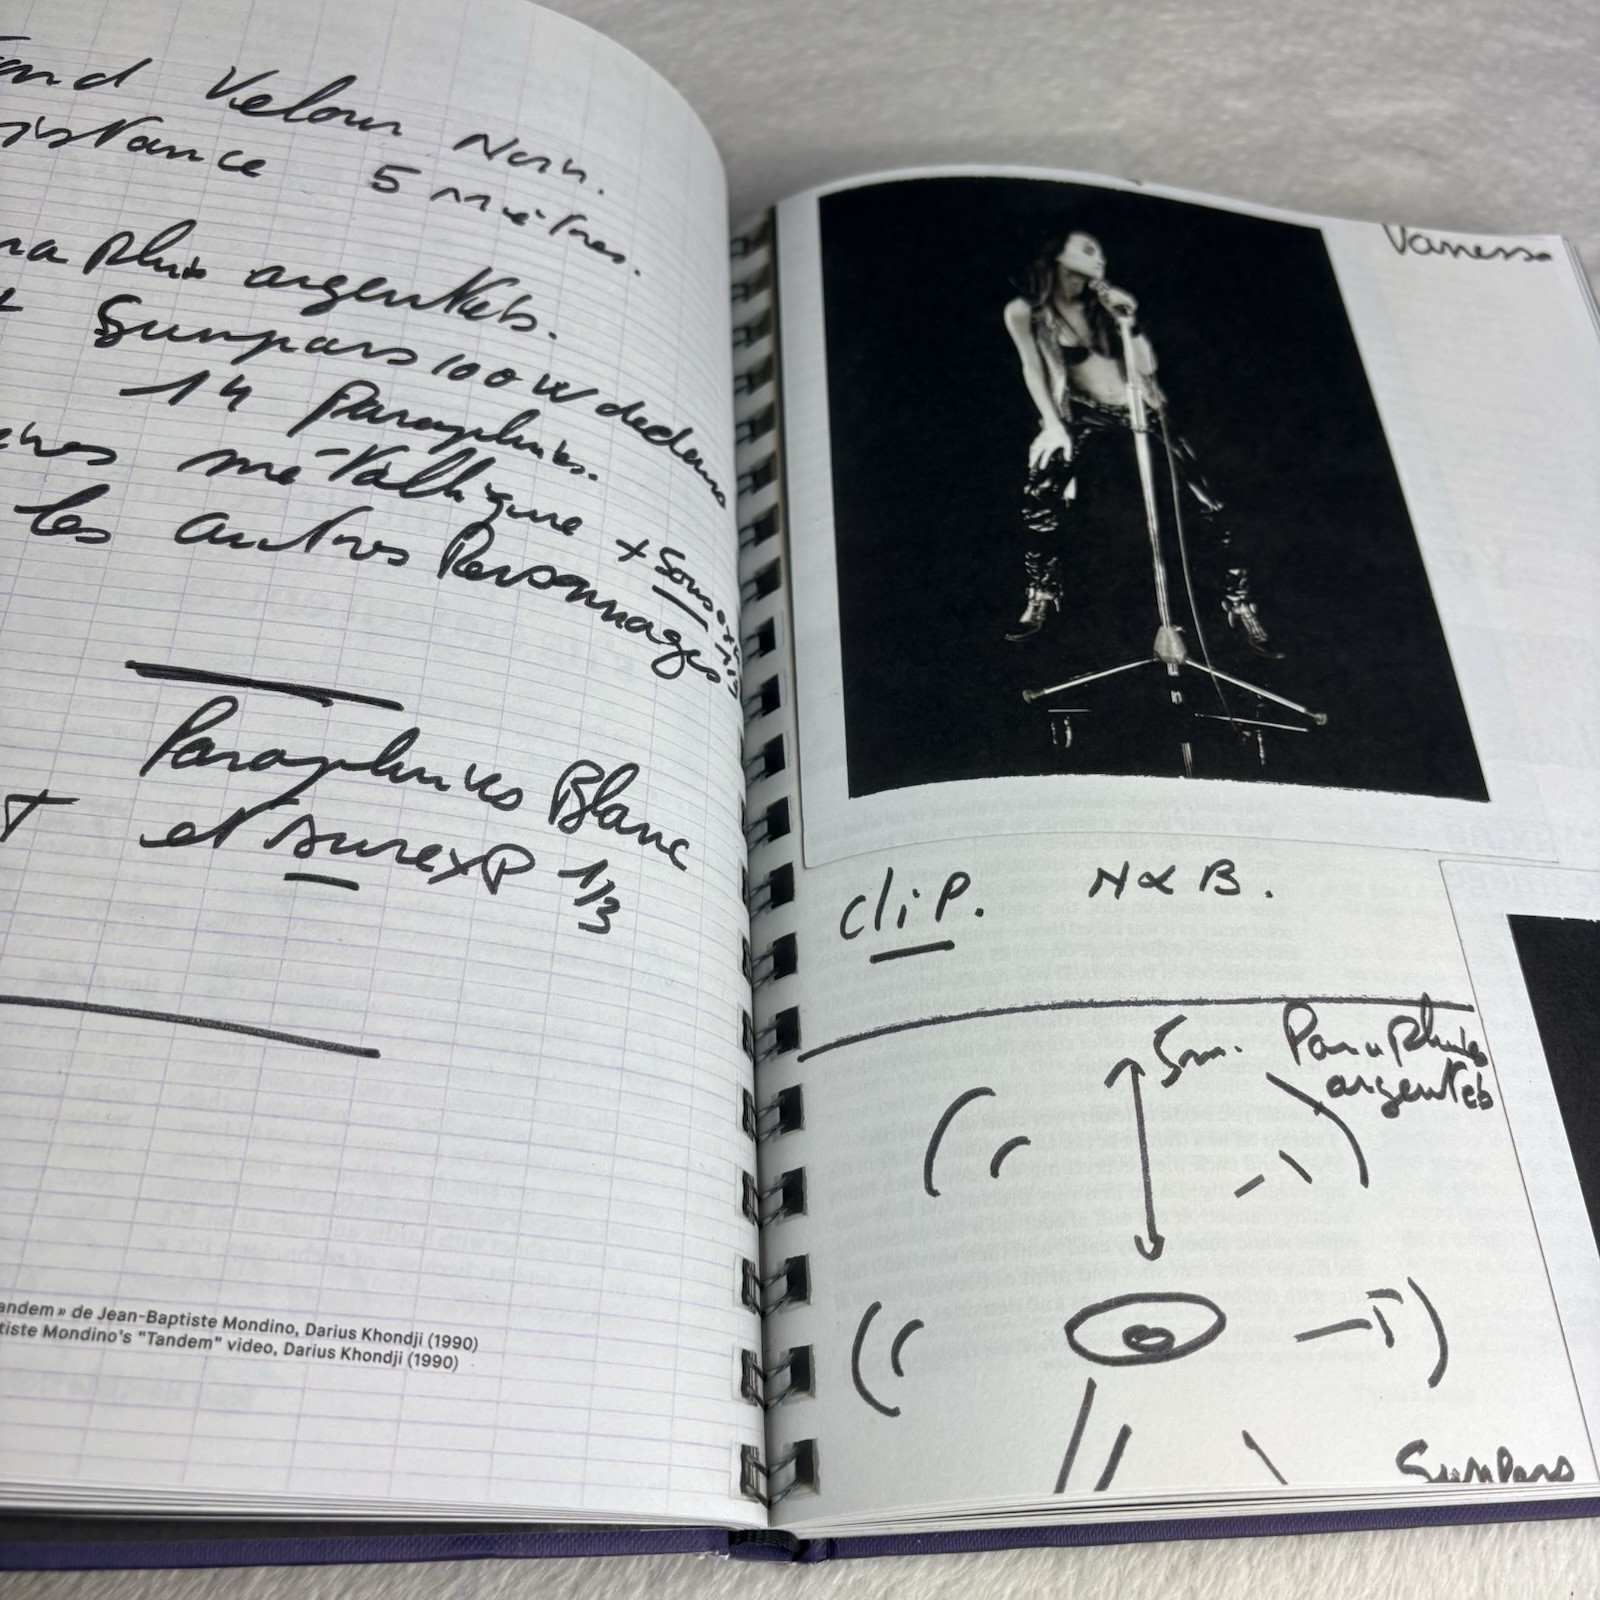 Fond Velour Noir.
istance 5 mètres.
ra Pluies argentées.
Sunpars 100 W dedans
14 Parapluies.
métallique + Sous exp 1/3
les autres Personnages
Parapluies Blanc
T et surexP 1/3
andem » de Jean-Baptiste Mondino, Darius Khondji (1990)
tiste Mondino's "Tandem" video, Darius Khondji (1990)
Vanessa
Clip. N & B.
5m. ParaPluies
argentées
Sunpars